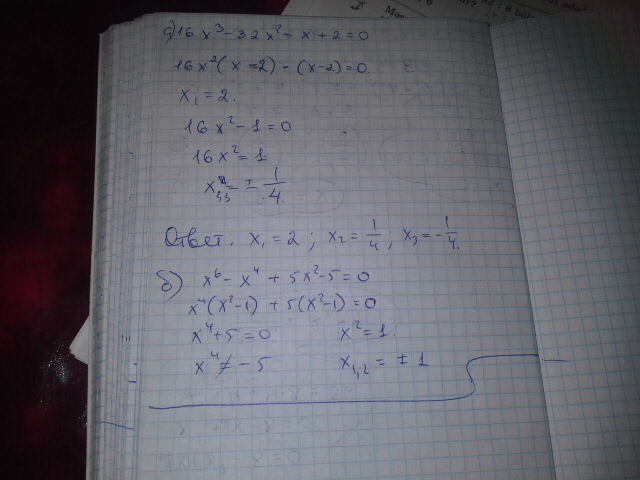 а) 16x³ - 32x² - x + 2 = 0
16x²(x - 2) - (x - 2) = 0.
x₁ = 2.
16x² - 1 = 0
16x² = 1
x₂,₃ = ± 1/4.
Ответ. x₁ = 2 ; x₂ = 1/4 ; x₃ = - 1/4.
б) x⁶ - x⁴ + 5x² - 5 = 0
x⁴(x² - 1) + 5(x² - 1) = 0
x⁴ + 5 = 0 x² = 1.
x⁴ ≠ - 5 x₁,₂ = ± 1